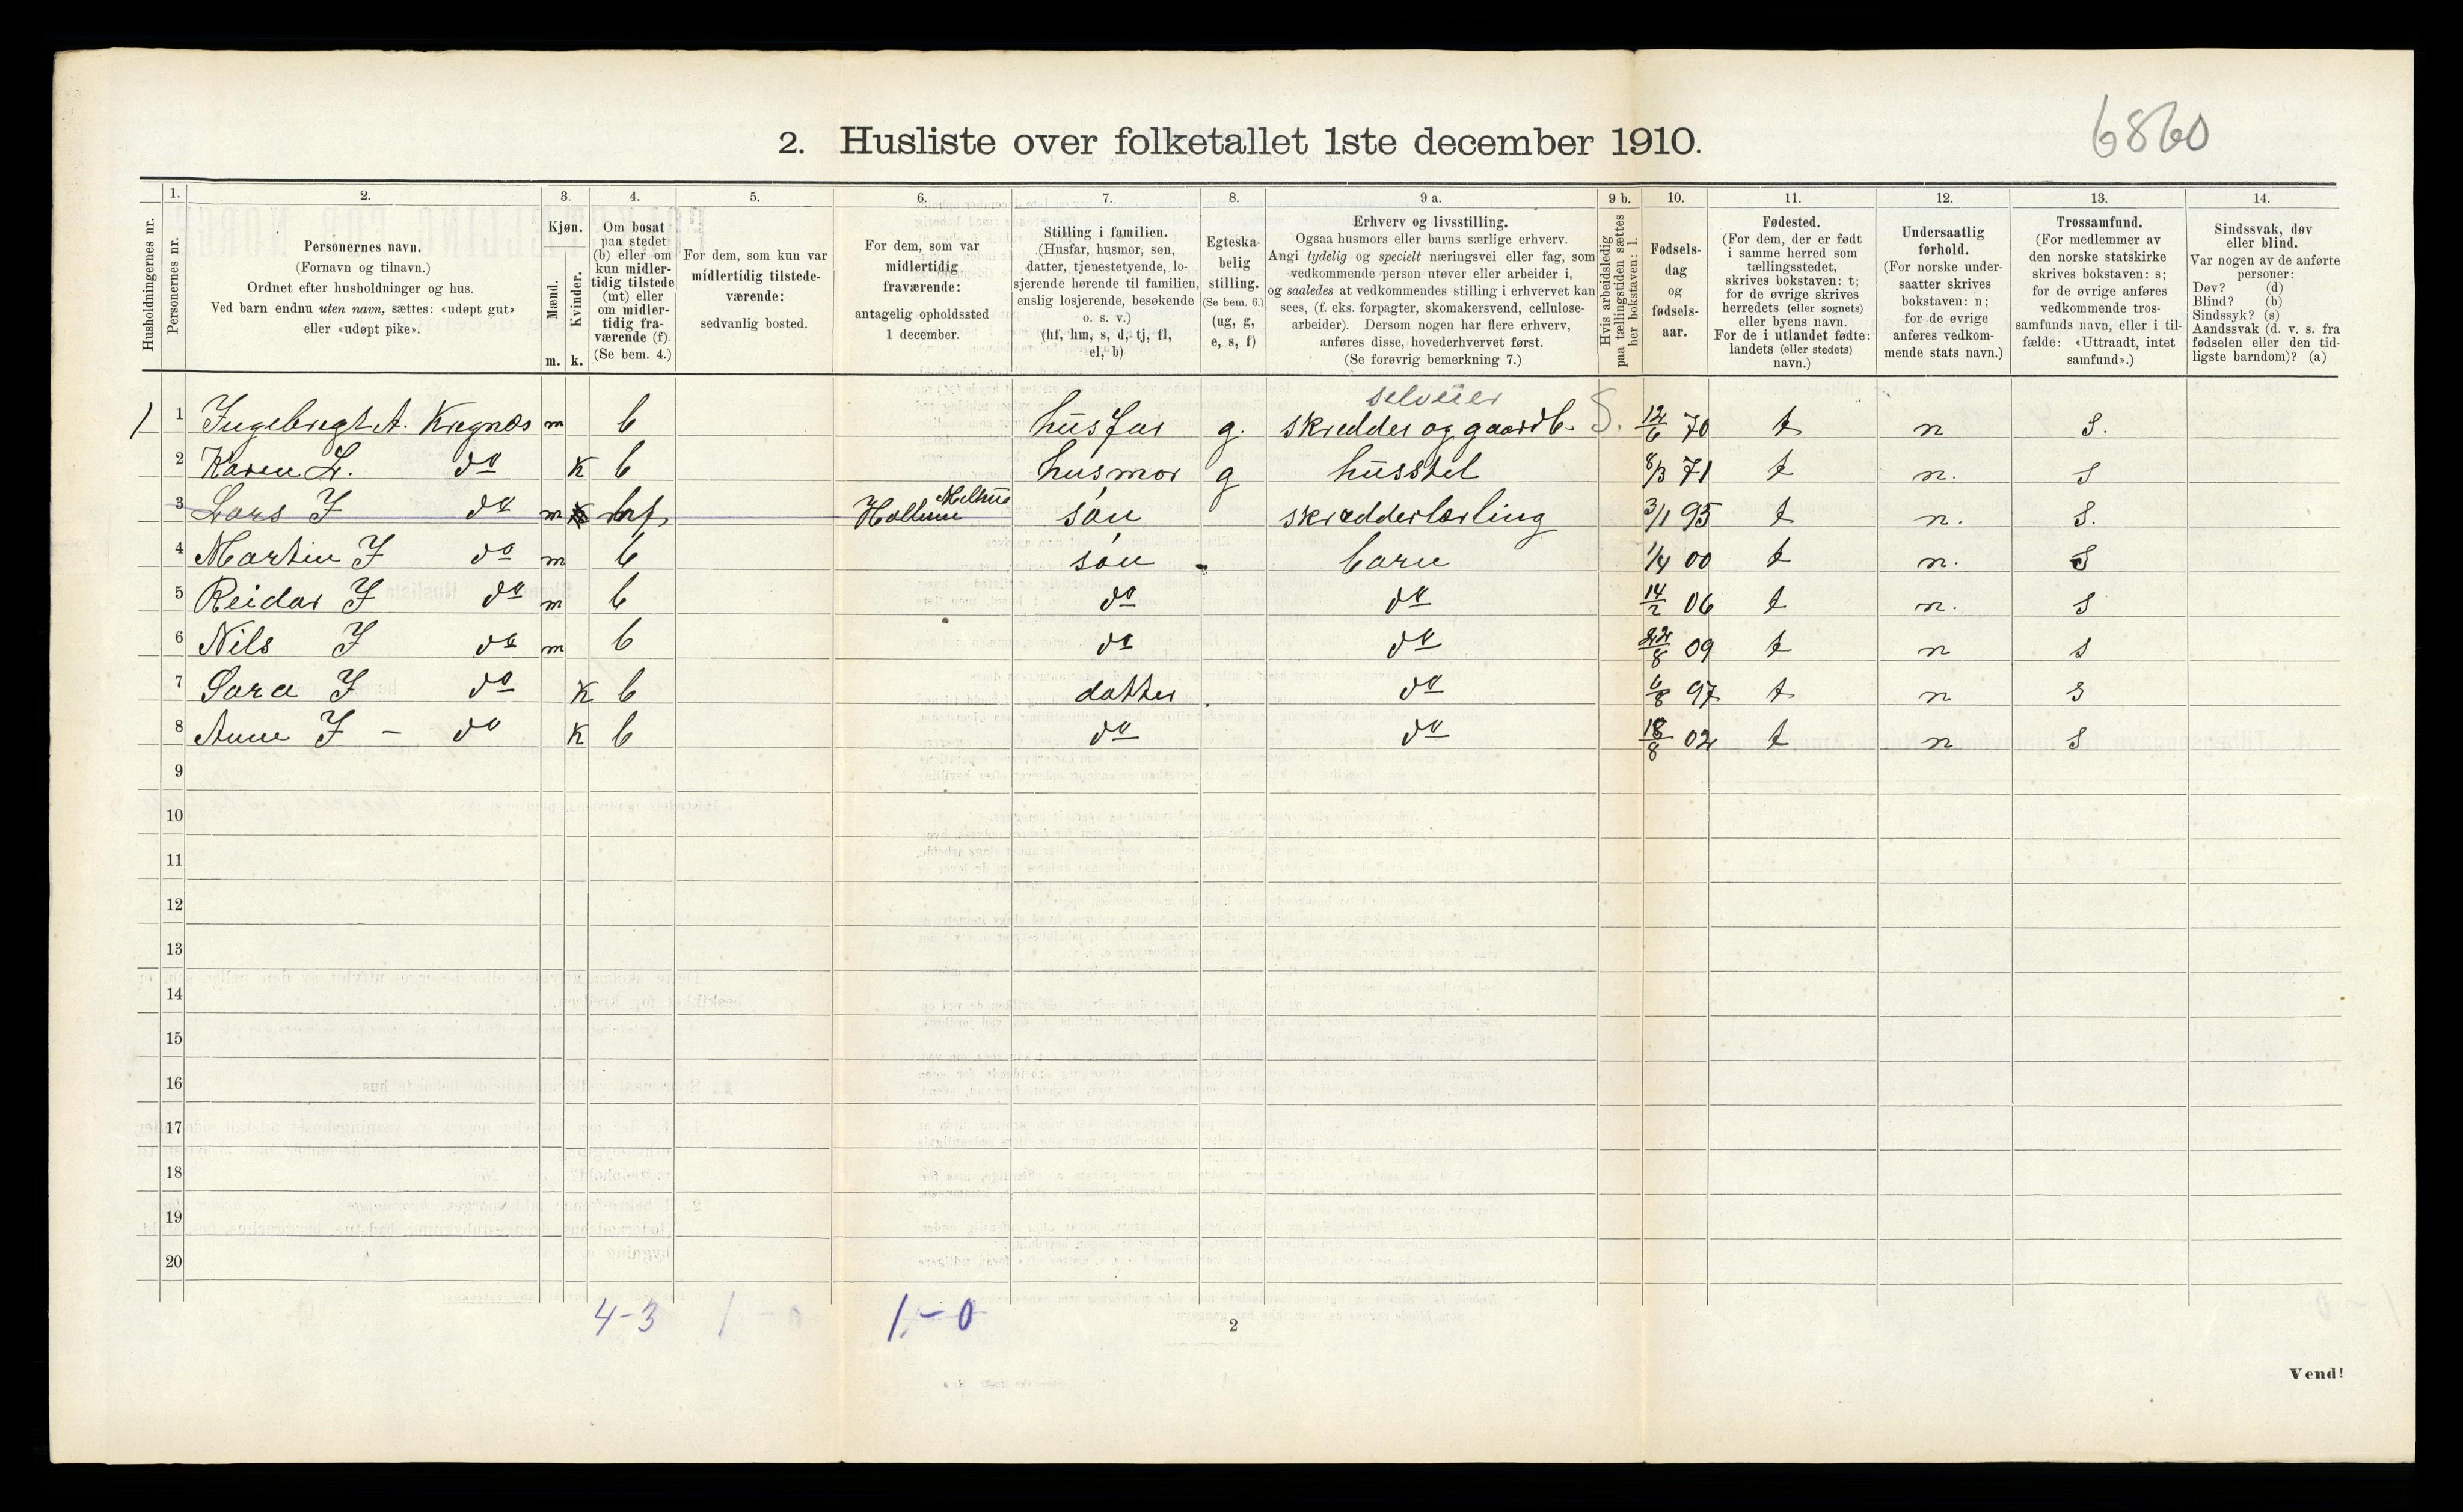 6860
2. Husliste over folketallet 1ste december 1910.
Husholdningernes nr.
1.
Personernes nr.
2.
Personernes navn.
(Fornavn og tilnavn.)
Ordnet efter husholdninger og hus.
Ved barn endnu uten navn, sættes: «udøpt gut»
eller «udøpt pike».
3.
Kjøn.
Mænd.
Kvinder.
m. k.
4.
Om bosat
paa stedet
(b) eller om
kun midler-
tidig tilstede
(mt) eller
om midler-
tidig fra-
værende (f).
(Se bem. 4.)
5.
For dem, som kun var
midlertidig tilstede-
værende:
sedvanlig bosted.
6.
For dem, som var
midlertidig
fraværende:
antagelig opholdssted
1 december.
7.
Stilling i familien.
(Husfar, husmor, søn,
datter, tjenestetyende, lo-
sjerende hørende til familien,
enslig losjerende, besøkende
o. s. v.)
(hf, hm, s, d, tj, fl,
el, b)
8.
Egteska-
belig
stilling.
(Se bem. 6.)
(ug, g,
e, s, f)
9 a.
Erhverv og livsstilling.
Ogsaa husmors eller barns særlige erhverv.
Angi tydelig og specielt næringsvei eller fag, som
vedkommende person utøver eller arbeider i,
og saaledes at vedkommendes stilling i erhvervet kan
sees, (f. eks. forpagter, skomakersvend, cellulose-
arbeider). Dersom nogen har flere erhverv,
anføres disse, hovederhvervet først.
(Se forøvrig bemerkning 7.)
9 b.
Hvis arbeidsledig
paa tællingstiden sættes
her bokstaven: l.
10.
Fødsels-
dag
og
fødsels-
aar.
11.
Fødested.
(For dem, der er født
i samme herred som
tællingsstedet,
skrives bokstaven: t;
for de øvrige skrives
herredets (eller sognets)
eller byens navn.
For de i utlandet fødte:
landets (eller stedets)
navn.)
12.
Undersaatlig
forhold.
(For norske under-
saatter skrives
bokstaven: n;
for de øvrige
anføres vedkom-
mende stats navn.)
13.
Trossamfund.
(For medlemmer av
den norske statskirke
skrives bokstaven: s;
for de øvrige anføres
vedkommende tros-
samfunds navn, eller i til-
fælde: «Uttraadt, intet
samfund».)
14.
Sindssvak, døv
eller blind.
Var nogen av de anførte
personer:
Døv? (d)
Blind? (b)
Sindssyk? (s)
Aandssvak (d. v. s. fra
fødselen eller den tid-
ligste barndom)? (a)
selveier
1 Ingebrigt A. Kregnæs m b husfar g. skrædder og gaardb. S. 12/6 70 t n s.
2 Karen L. do k b husmor g husstel 8/3 71 t n. s
Melhus
3 Lars I do m f Hollum søn skrædderlærling 3/1 95 t n. s.
4 Martin I do m b søn barn 1/4 00 t n. s
5 Reidar I do m b do do 14/2 06 t n. s
6 Nils I do m b do do 22/8 09 t n s
7 Sara I do k b datter do 6/8 97 t n s
8 Anne I – do k b do do 18/8 02 t n s
9
10
11
12
13
14
15
16
17
18
19
20
4-3 1-0 1-0
2
Vend!